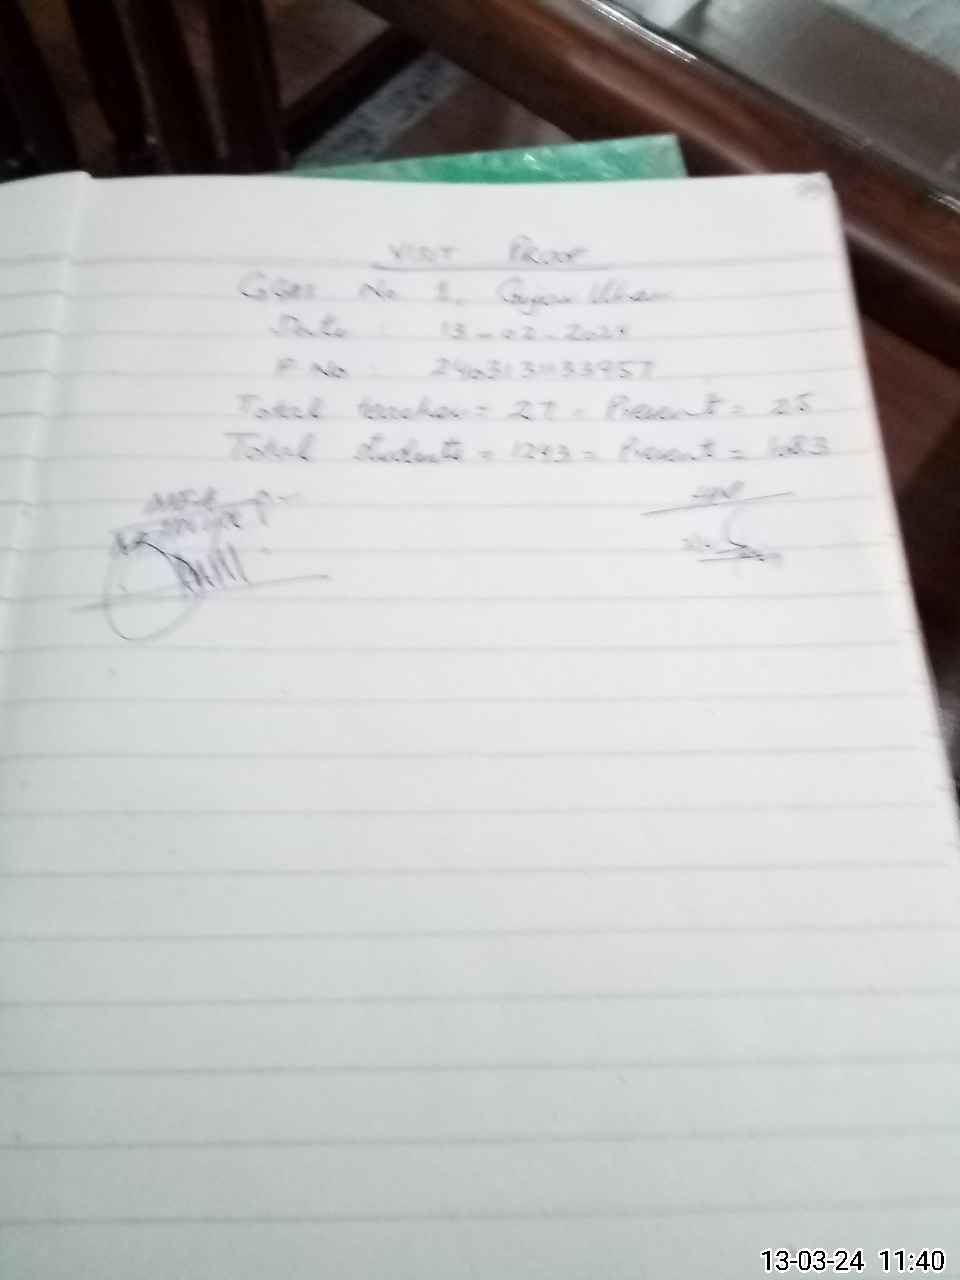 VISIT PROOF
No. 1, Gujar Khan
Date : 13-02-2024
P. No : 2403131133957
Total teacher = 27 = Present = 25
Total students = 1293 = Present = 1083
13-03-24 11:40